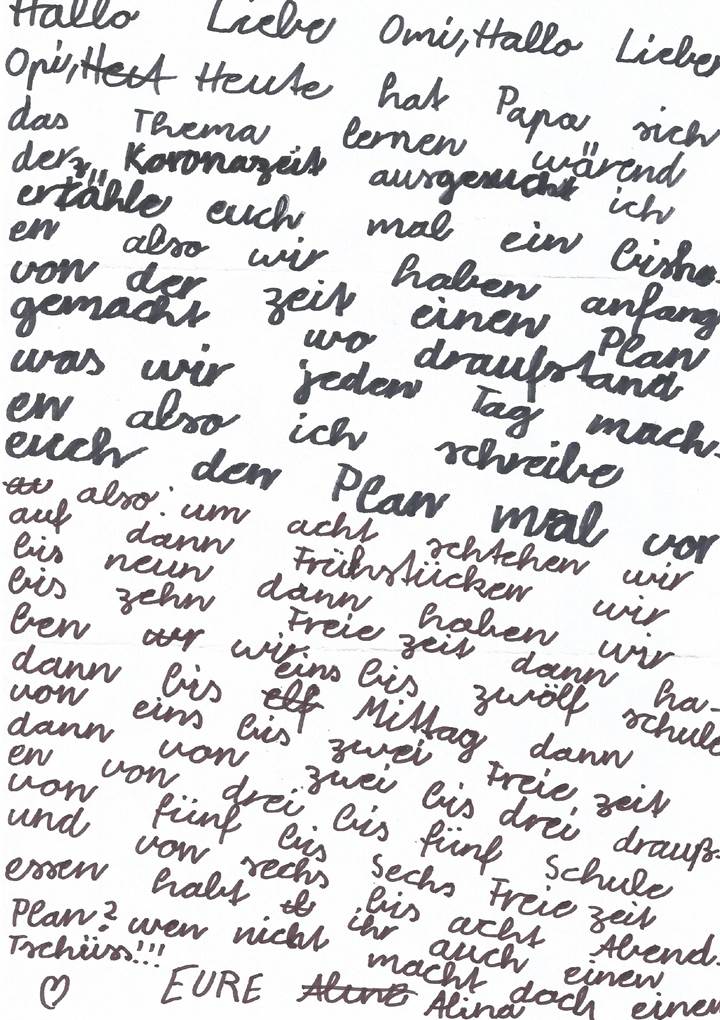 Hallo Liebe Omi, Hallo Lieber
Opi, Heut Heute hat Papa sich
das Thema lernen wärend
der Koronazeit ausgesucht ich
erzähle euch mal ein
en also wir haben anfang
von der zeit einen Plan
gemacht wo draufstand
was wir jeden Tag mach-
en also ich schreibe
euch den Plan mal vor
also: um acht schtehen wir
auf dann Frühstücken wir
bis neun dann haben wir
bis zehn Freie zeit dann ha-
ben wir bis zwölf schule
dann bis elf eins Mittag dann
von eins bis zwei Freie zeit
dann von zwei bis drei drauß-
en von drei bis fünf Schule
von fünf bis Sechs Freie zeit
und von sechs bis acht Abend-
essen habt ihr auch einen
Plan? wen nicht macht doch einen
Tschüss!!!
♡ EURE Alina Alina